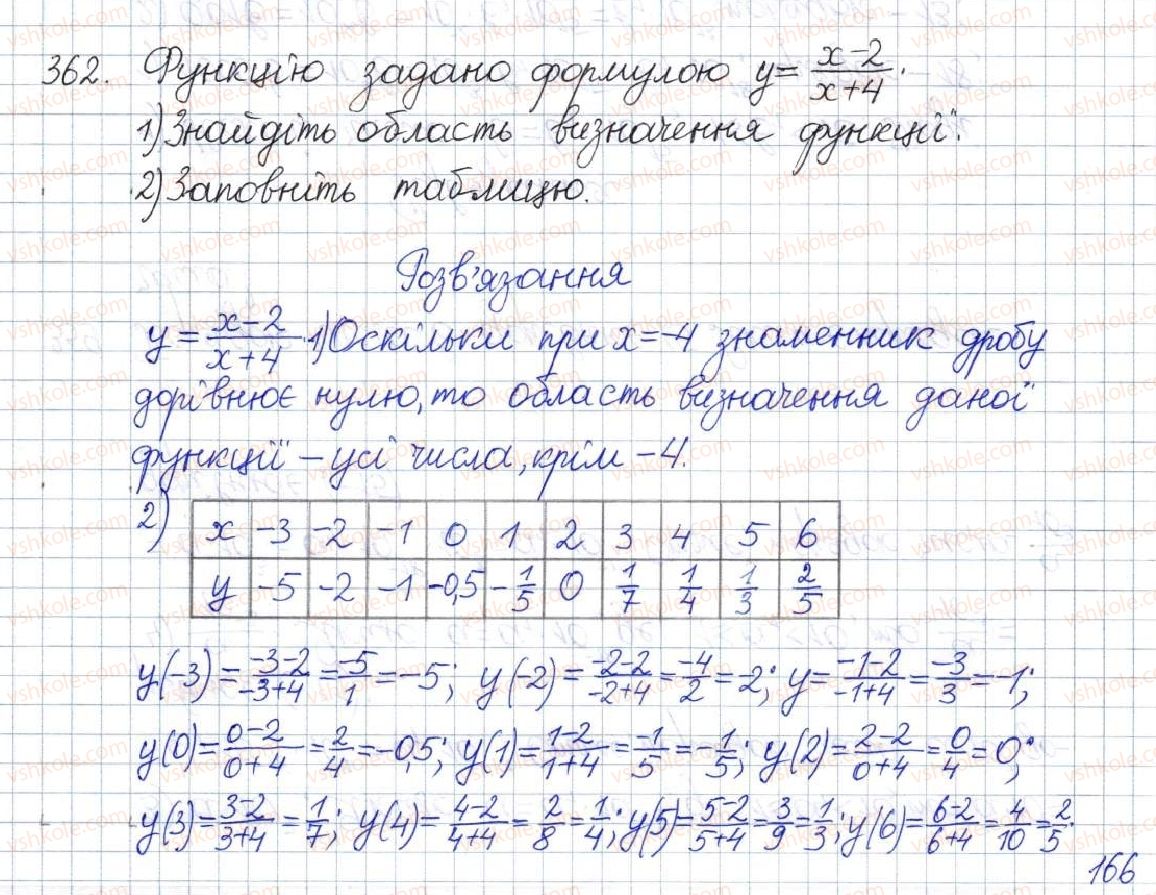 362. Функцію задано формулою y = (x-2)/(x+4).
1) Знайдіть область визначення функції.
2) Заповніть таблицю.
Розв'язання
y = (x-2)/(x+4). 1) Оскільки при x = -4 знаменник дробу
дорівнює нулю, то область визначення даної
функції – усі числа, крім -4.
2)
x -3 -2 -1 0 1 2 3 4 5 6
y -5 -2 -1 -0,5 -1/5 0 1/7 1/4 1/3 2/5
y(-3) = (-3-2)/(-3+4) = -5/1 = -5; y(-2) = (-2-2)/(-2+4) = -4/2 = -2; y = (-1-2)/(-1+4) = -3/3 = -1;
y(0) = (0-2)/(0+4) = 2/4 = -0,5; y(1) = (1-2)/(1+4) = -1/5 = -1/5; y(2) = (2-2)/(0+4) = 0/4 = 0;
y(3) = (3-2)/(3+4) = 1/7; y(4) = (4-2)/(4+4) = 2/8 = 1/4; y(5) = (5-2)/(5+4) = 3/9 = 1/3; y(6) = (6-2)/(6+4) = 4/10 = 2/5.
166
vshkole.com